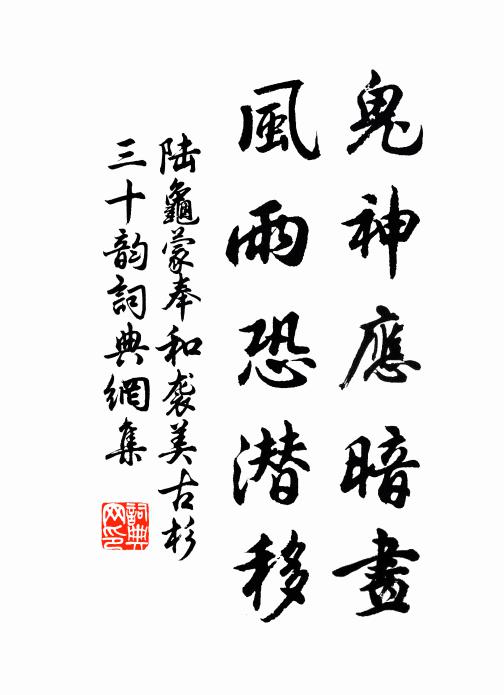 鬼神應暗畫
風雨恐潜移
陆龜蒙奉和袭美古杉
三十韵詞典網集
詞典网印